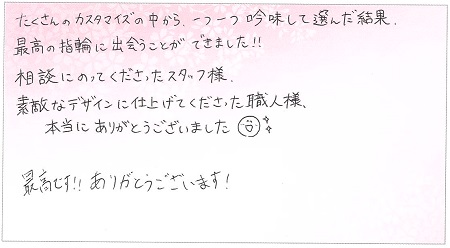 たくさんのカスタマイズの中から、一つ一つ吟味して選んだ結果、
最高の指輪に出会うことができました!!
相談にのってくださったスタッフ様、
素敵なデザインに仕上げてくださった職人様、
本当にありがとうございました
最高です!! ありがとうございます!